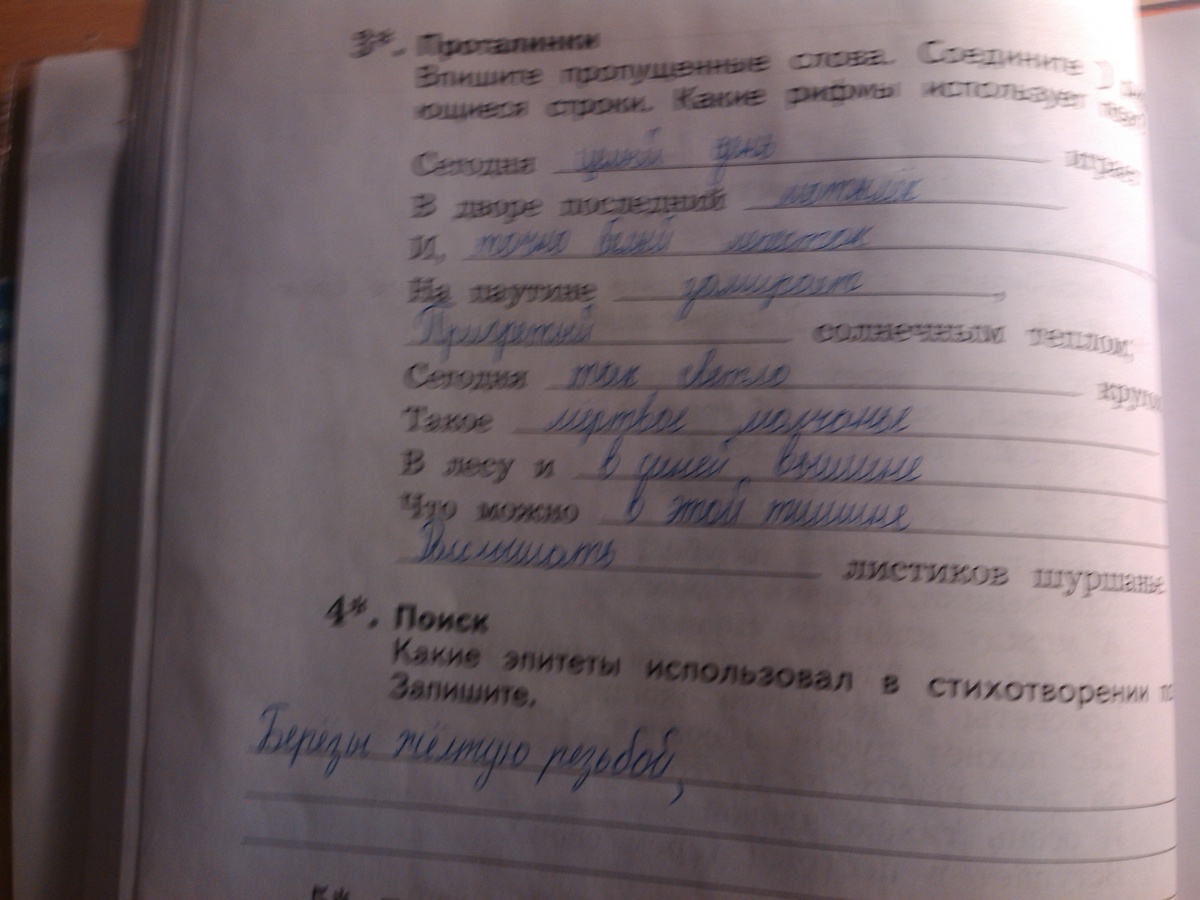 3*. Проталинки
Впишите пропущенные слова. Соедините
ющиеся строки. Какие рифмы использует
Сегодня целый день играет
В дворе последний мотылёк
И, точно белый лепесток
На паутине замирает,
Пригретый солнечным теплом;
Сегодня так светло кругом
Такое мёртвое молчанье
В лесу и в синей вышине
Что можно в этой тишине
Расслышать листиков шуршанье
4*. Поиск
Какие эпитеты использовал в стихотворении
Запишите,
Берёзы жёлтую резьбой,